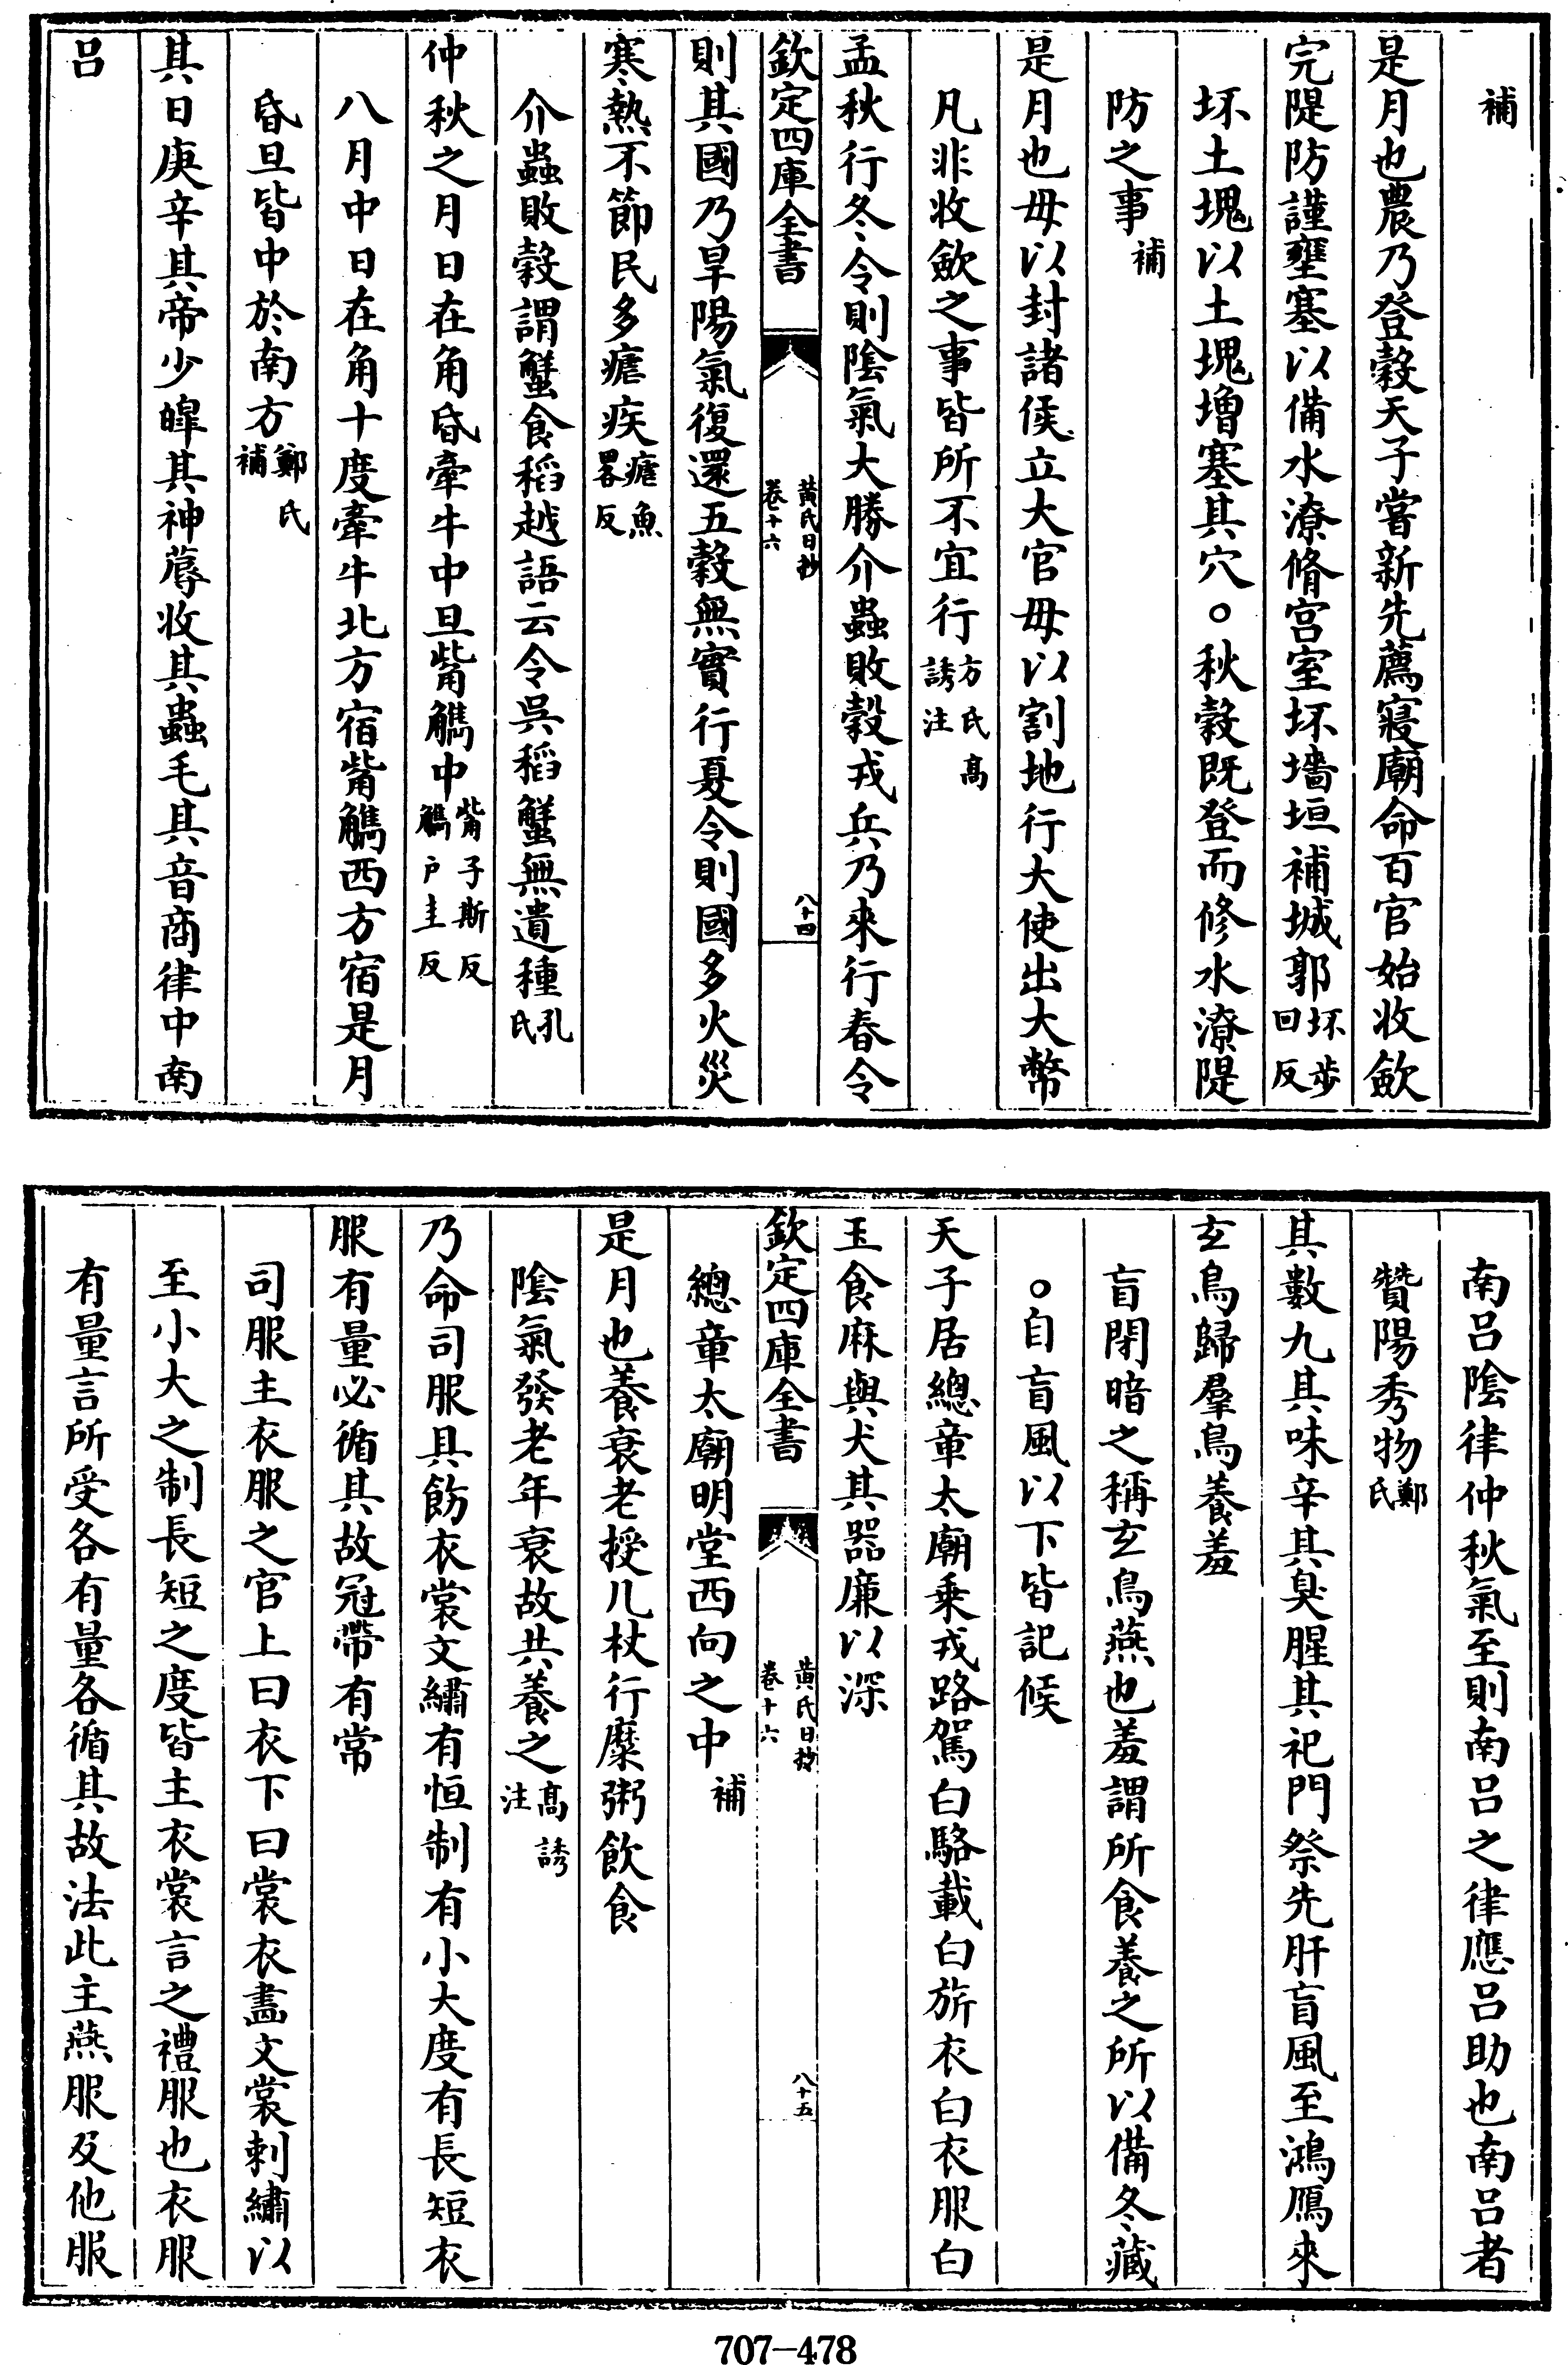 補
是月也農乃登穀天子嘗新先薦寢廟命百官始收歛
完隄防謹壅塞以備水潦脩宫室坏墻垣補城郭坏步回反
坏土塊以土塊增塞其穴○秋穀既登而修水潦隄
防之事補
是月也毋以封諸侯立大官毋以割地行大使出大幣
凡非收歛之事皆所不宜行方氏高誘注
孟秋行冬令則陰氣大勝介蟲敗穀戎兵乃來行春令
欽定四庫全書 黄氏日抄 卷十六 八十四
則其國乃旱陽氣復還五穀無實行夏令則國多火災
寒熱不節民多瘧疾瘧魚畧反
介蟲敗穀謂蟹食稻越語云令吳稻蟹無遺種孔氏
仲秋之月日在角昏牽牛中旦觜觿中觜子斯反觿户圭反
八月中日在角十度牽牛北方宿觜觿西方宿是月
昏旦皆中於南方鄭氏補
其日庚辛其帝少皥其神蓐收其蟲毛其音商律中南
吕
南吕陰律仲秋氣至則南吕之律應吕助也南吕者
贊陽秀物鄭氏
其數九其味辛其臭腥其祀門祭先肝盲風至鴻鴈來
玄鳥歸羣鳥養羞
盲閉暗之稱玄鳥燕也羞謂所食養之所以備冬藏
○自盲風以下皆記候
天子居總章太廟乗戎路駕白駱載白旂衣白衣服白
玉食麻與犬其器廉以深
欽定四庫全書 黄氏日抄 卷十六 八十五
總章太廟明堂西向之中補
是月也養衰老授几杖行糜粥飲食
陰氣發老年衰故共養之高誘注
乃命司服具飭衣裳文繡有恒制有小大度有長短衣
服有量必循其故冠帶有常
司服主衣服之官上曰衣下曰裳衣畫文裳刺繡以
至小大之制長短之度皆主衣裳言之禮服也衣服
有量言所受各有量各循其故法此主燕服及他服
707-478